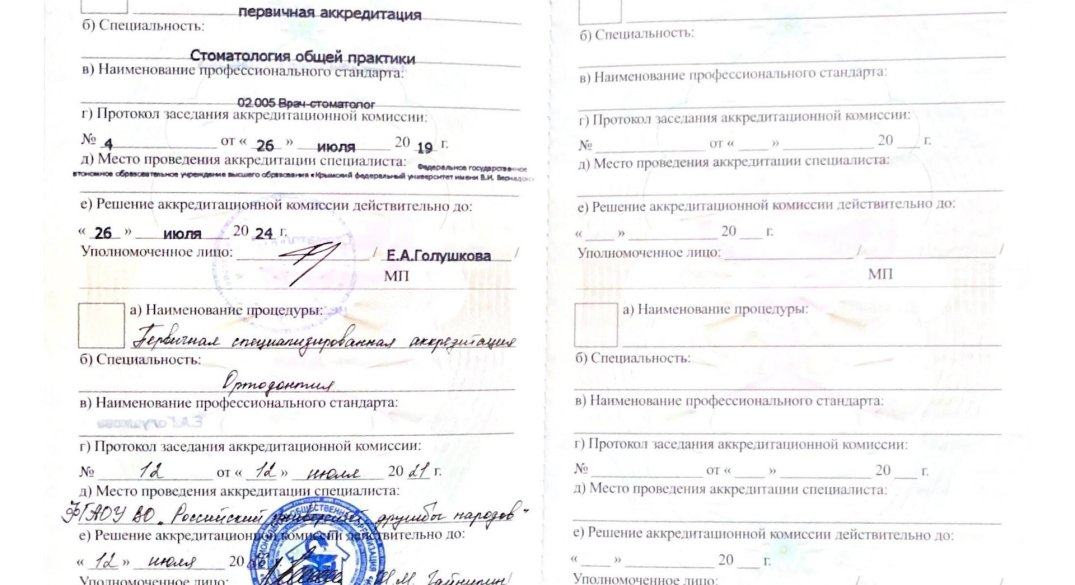 первичная аккредитация
б) Специальность:
Стоматология общей практики
в) Наименование профессионального стандарта:
02.005 Врач-стоматолог
г) Протокол заседания аккредитационной комиссии:
№ 4 от « 26 » июля 20 19 г.
д) Место проведения аккредитации специалиста: Федеральное государственное
автономное образовательное учреждение высшего образования «Крымский федеральный университет имени В.И. Вернадского
е) Решение аккредитационной комиссии действительно до:
« 26 » июля 20 24 г.
Уполномоченное лицо: / Е.А.Голушкова /
МП
а) Наименование процедуры:
Первичная специализированная аккредитация
б) Специальность:
Ортодонтия
в) Наименование профессионального стандарта:
г) Протокол заседания аккредитационной комиссии:
№ 12 от « 12 » июля 20 21 г.
д) Место проведения аккредитации специалиста:
ФГАОУ ВО „Российский университет дружбы народов"
е) Решение аккредитационной комиссии действительно до:
« 12 » июля 20 г.
Уполномоченное лицо:
б) Специальность:
в) Наименование профессионального стандарта:
г) Протокол заседания аккредитационной комиссии:
№ от « » 20 г.
д) Место проведения аккредитации специалиста:
е) Решение аккредитационной комиссии действительно до:
« » 20 г.
Уполномоченное лицо: / /
МП
а) Наименование процедуры:
б) Специальность:
в) Наименование профессионального стандарта:
г) Протокол заседания аккредитационной комиссии:
№ от « » 20 г.
д) Место проведения аккредитации специалиста:
е) Решение аккредитационной комиссии действительно до:
« » 20 г.
Уполномоченное лицо: / /